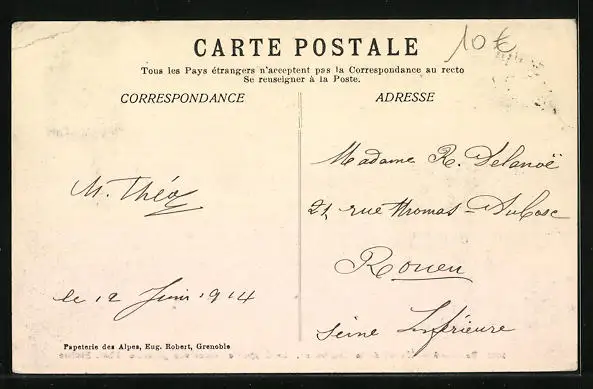 CARTE POSTALE
10€
Tous les Pays étrangers n'acceptent pas la Correspondance au recto
Se renseigner à la Poste.
CORRESPONDANCE
ADRESSE
M. Théo
le 12 Juin 1914
Madame R. Delanoë
21 rue Thomas-Dubosc
Rouen
Seine Inférieure
Papeterie des Alpes, Eug. Robert, Grenoble